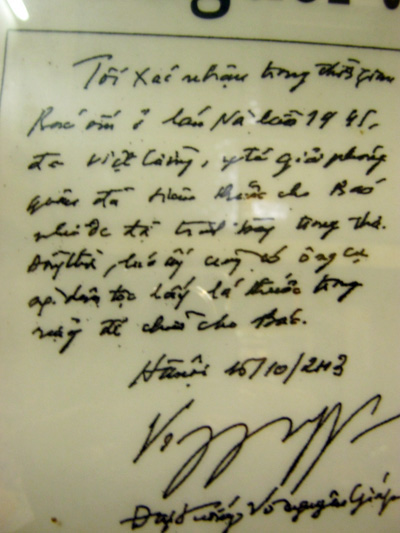 Tôi xác nhận trong thời gian
Bác ốm ở lán Nà Lừa 1945,
đ/c Việt Cường, y tá giải phóng
quân đã tiêm thuốc cho Bác
như đ/c đã trình bày trong thư.
Đồng thời, lúc ấy cũng có ông cụ
người dân tộc lấy lá thuốc trong
rừng để chữa cho Bác.
Hà Nội 15/10/2003
Đại tướng Võ Nguyên Giáp